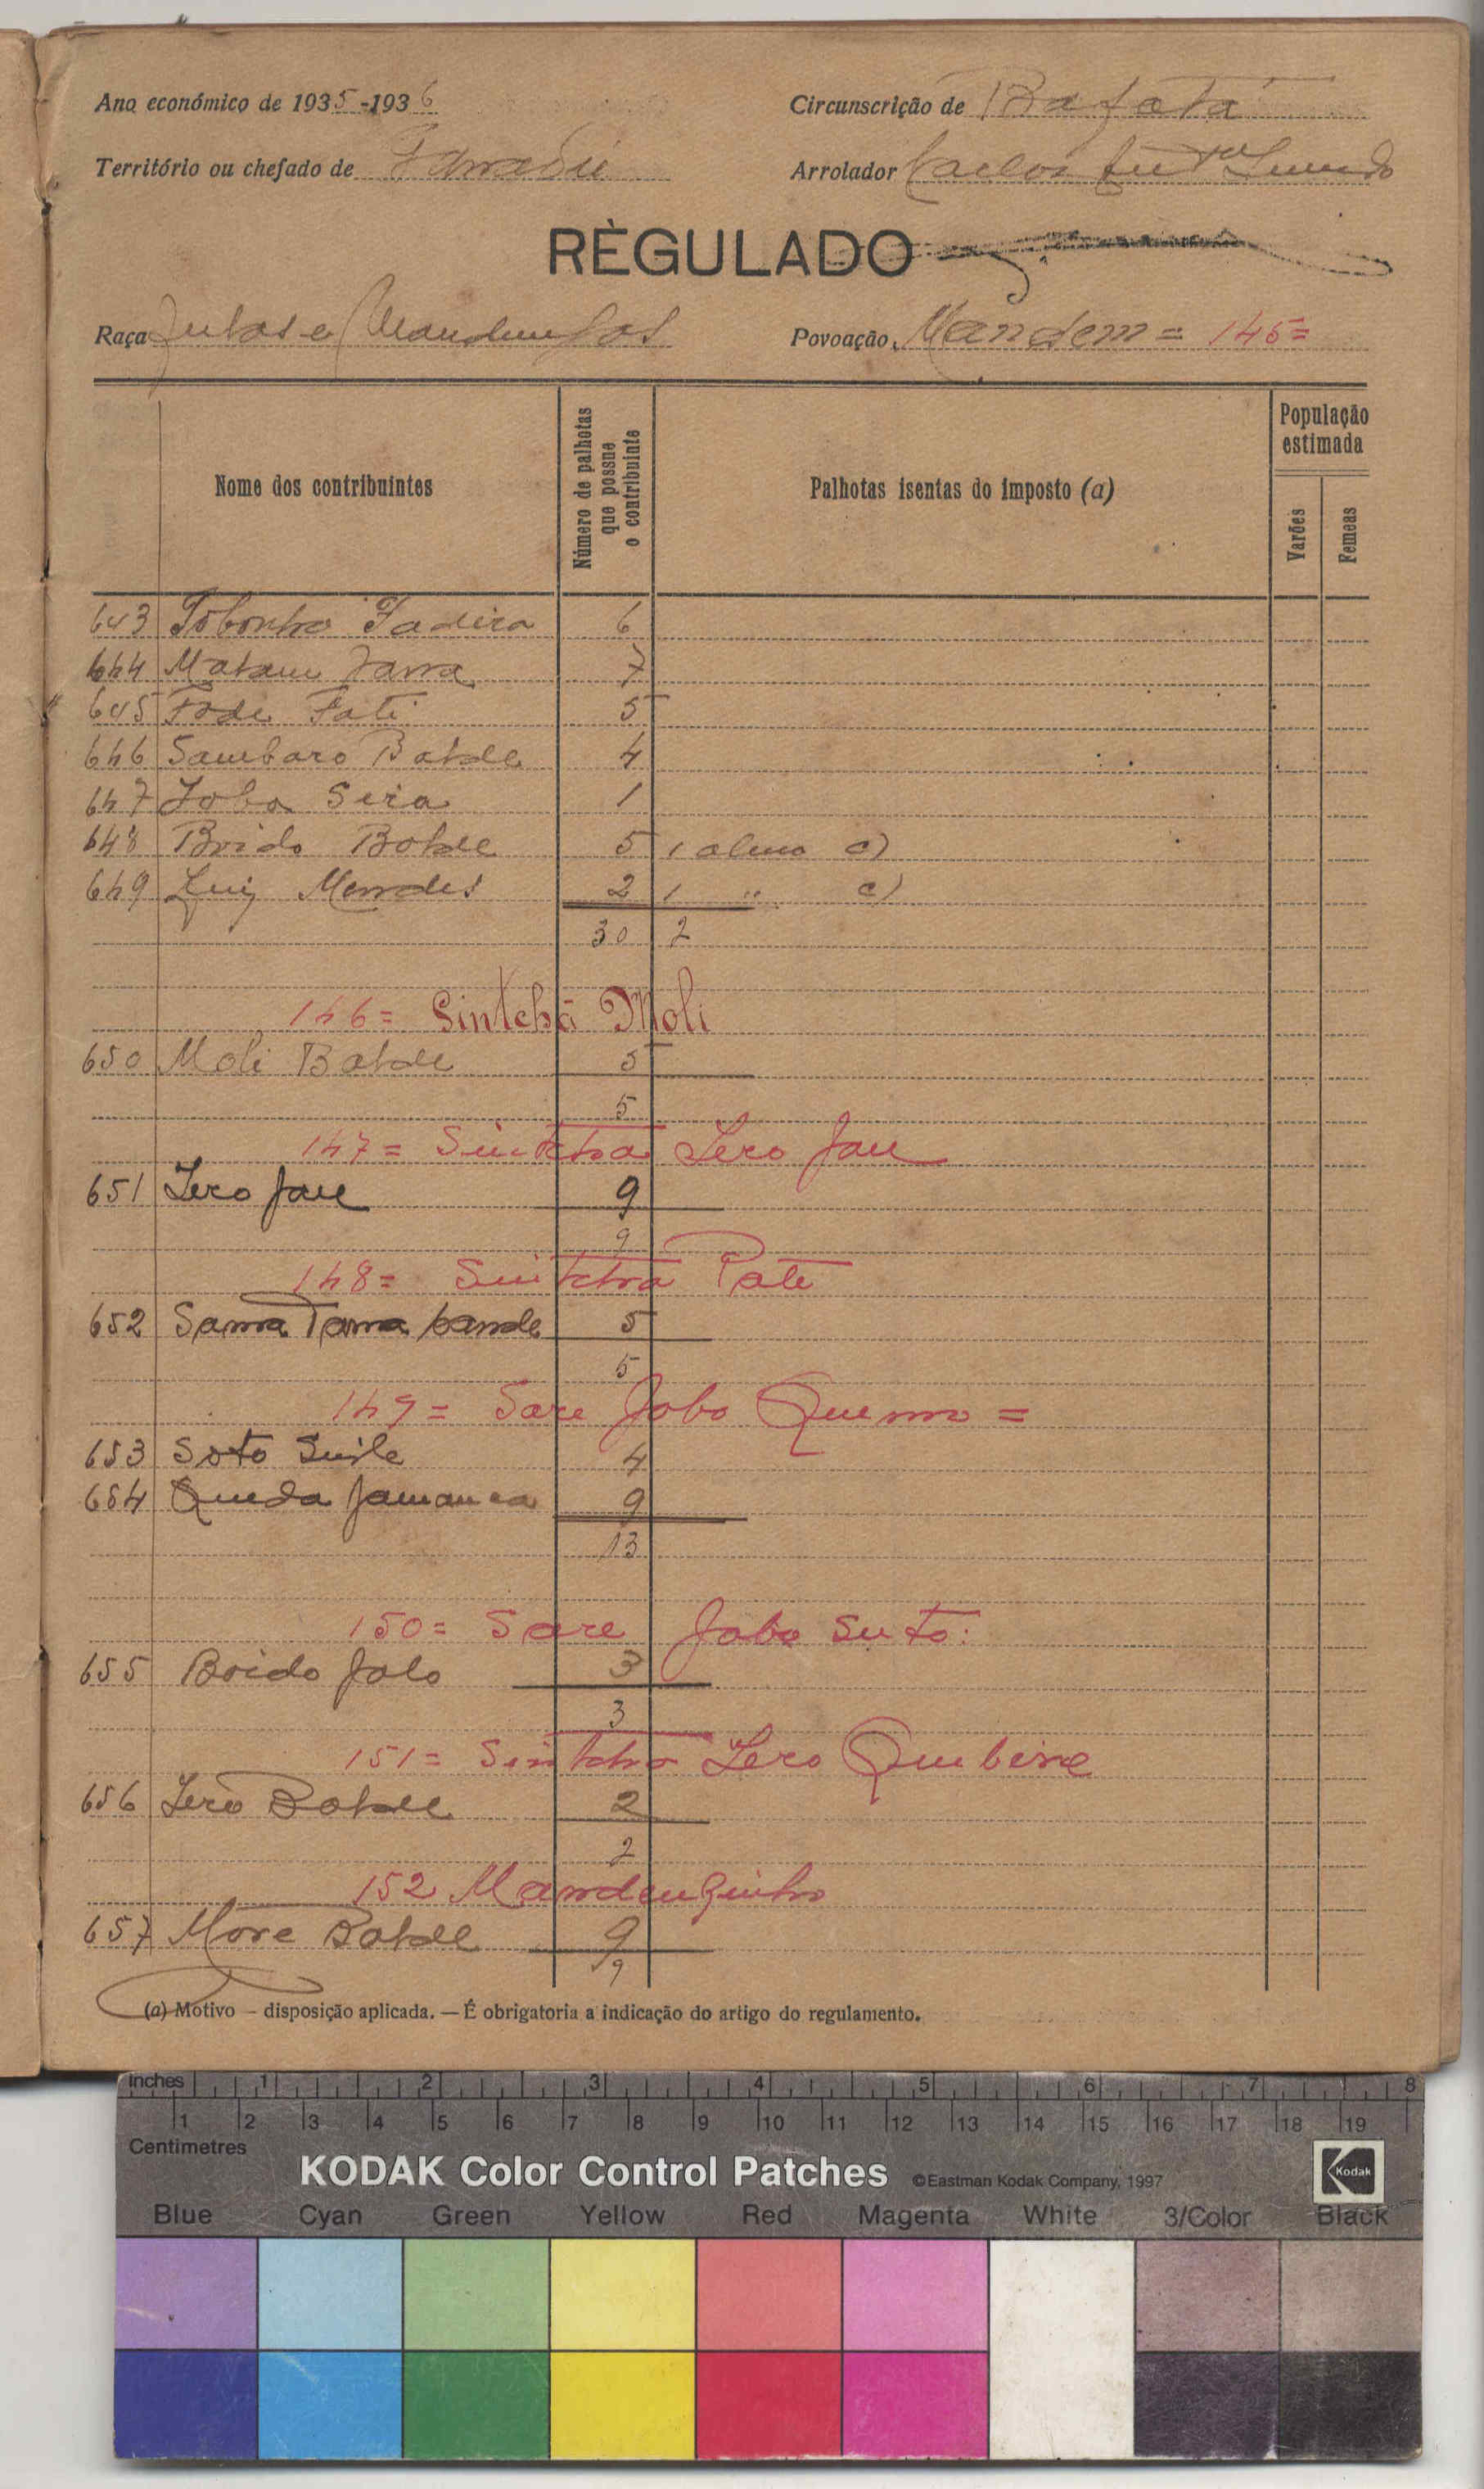 Ano económico de 1935-1936
Circunscrição de Bafatá
Território ou chefado de
Arrolador Carlos
RÈGULADO
Raça Fulas e Mandingas
Povoação, Mandem = 145 =
Nome dos contribuintes
Número de palhotas que possue o contribuinte
Palhotas isentas do imposto (a)
População estimada
Varões
Femeas
643 Fadira 6
644 7
645 Fode Fati 5
646 Sambaro Balde 4
647 Joba Seira 1
648 Boido Balde 5 1 aluno c)
649 Luiz Mendes 2 1 " c)
30 2
146 = Sintchã Moli
650 Moli Balde 5
5
147 = Sintcha Lero Jau
651 Lero Jau 9
9
148 = Sintcha Pate
652 Samba 5
5
149 = Sare Jobo Quemo =
653 Soto Suile 4
654 Queda Jamanca 9
13
150 = Sare Jobo Suto:
655 Boido Jalo 3
3
151 = Sintcha Lero Qumbine
656 Lero Balde 2
2
152 Mandenguinho
657 More Balde 9
9
(a) Motivo — disposição aplicada. — É obrigatoria a indicação do artigo do regulamento.
Inches 1 2 3 4 5 6 7 8
1 2 3 4 5 6 7 8 9 10 11 12 13 14 15 16 17 18 19
Centimetres
KODAK Color Control Patches ©Eastman Kodak Company, 1997 Kodak
Blue Cyan Green Yellow Red Magenta White 3/Color Black